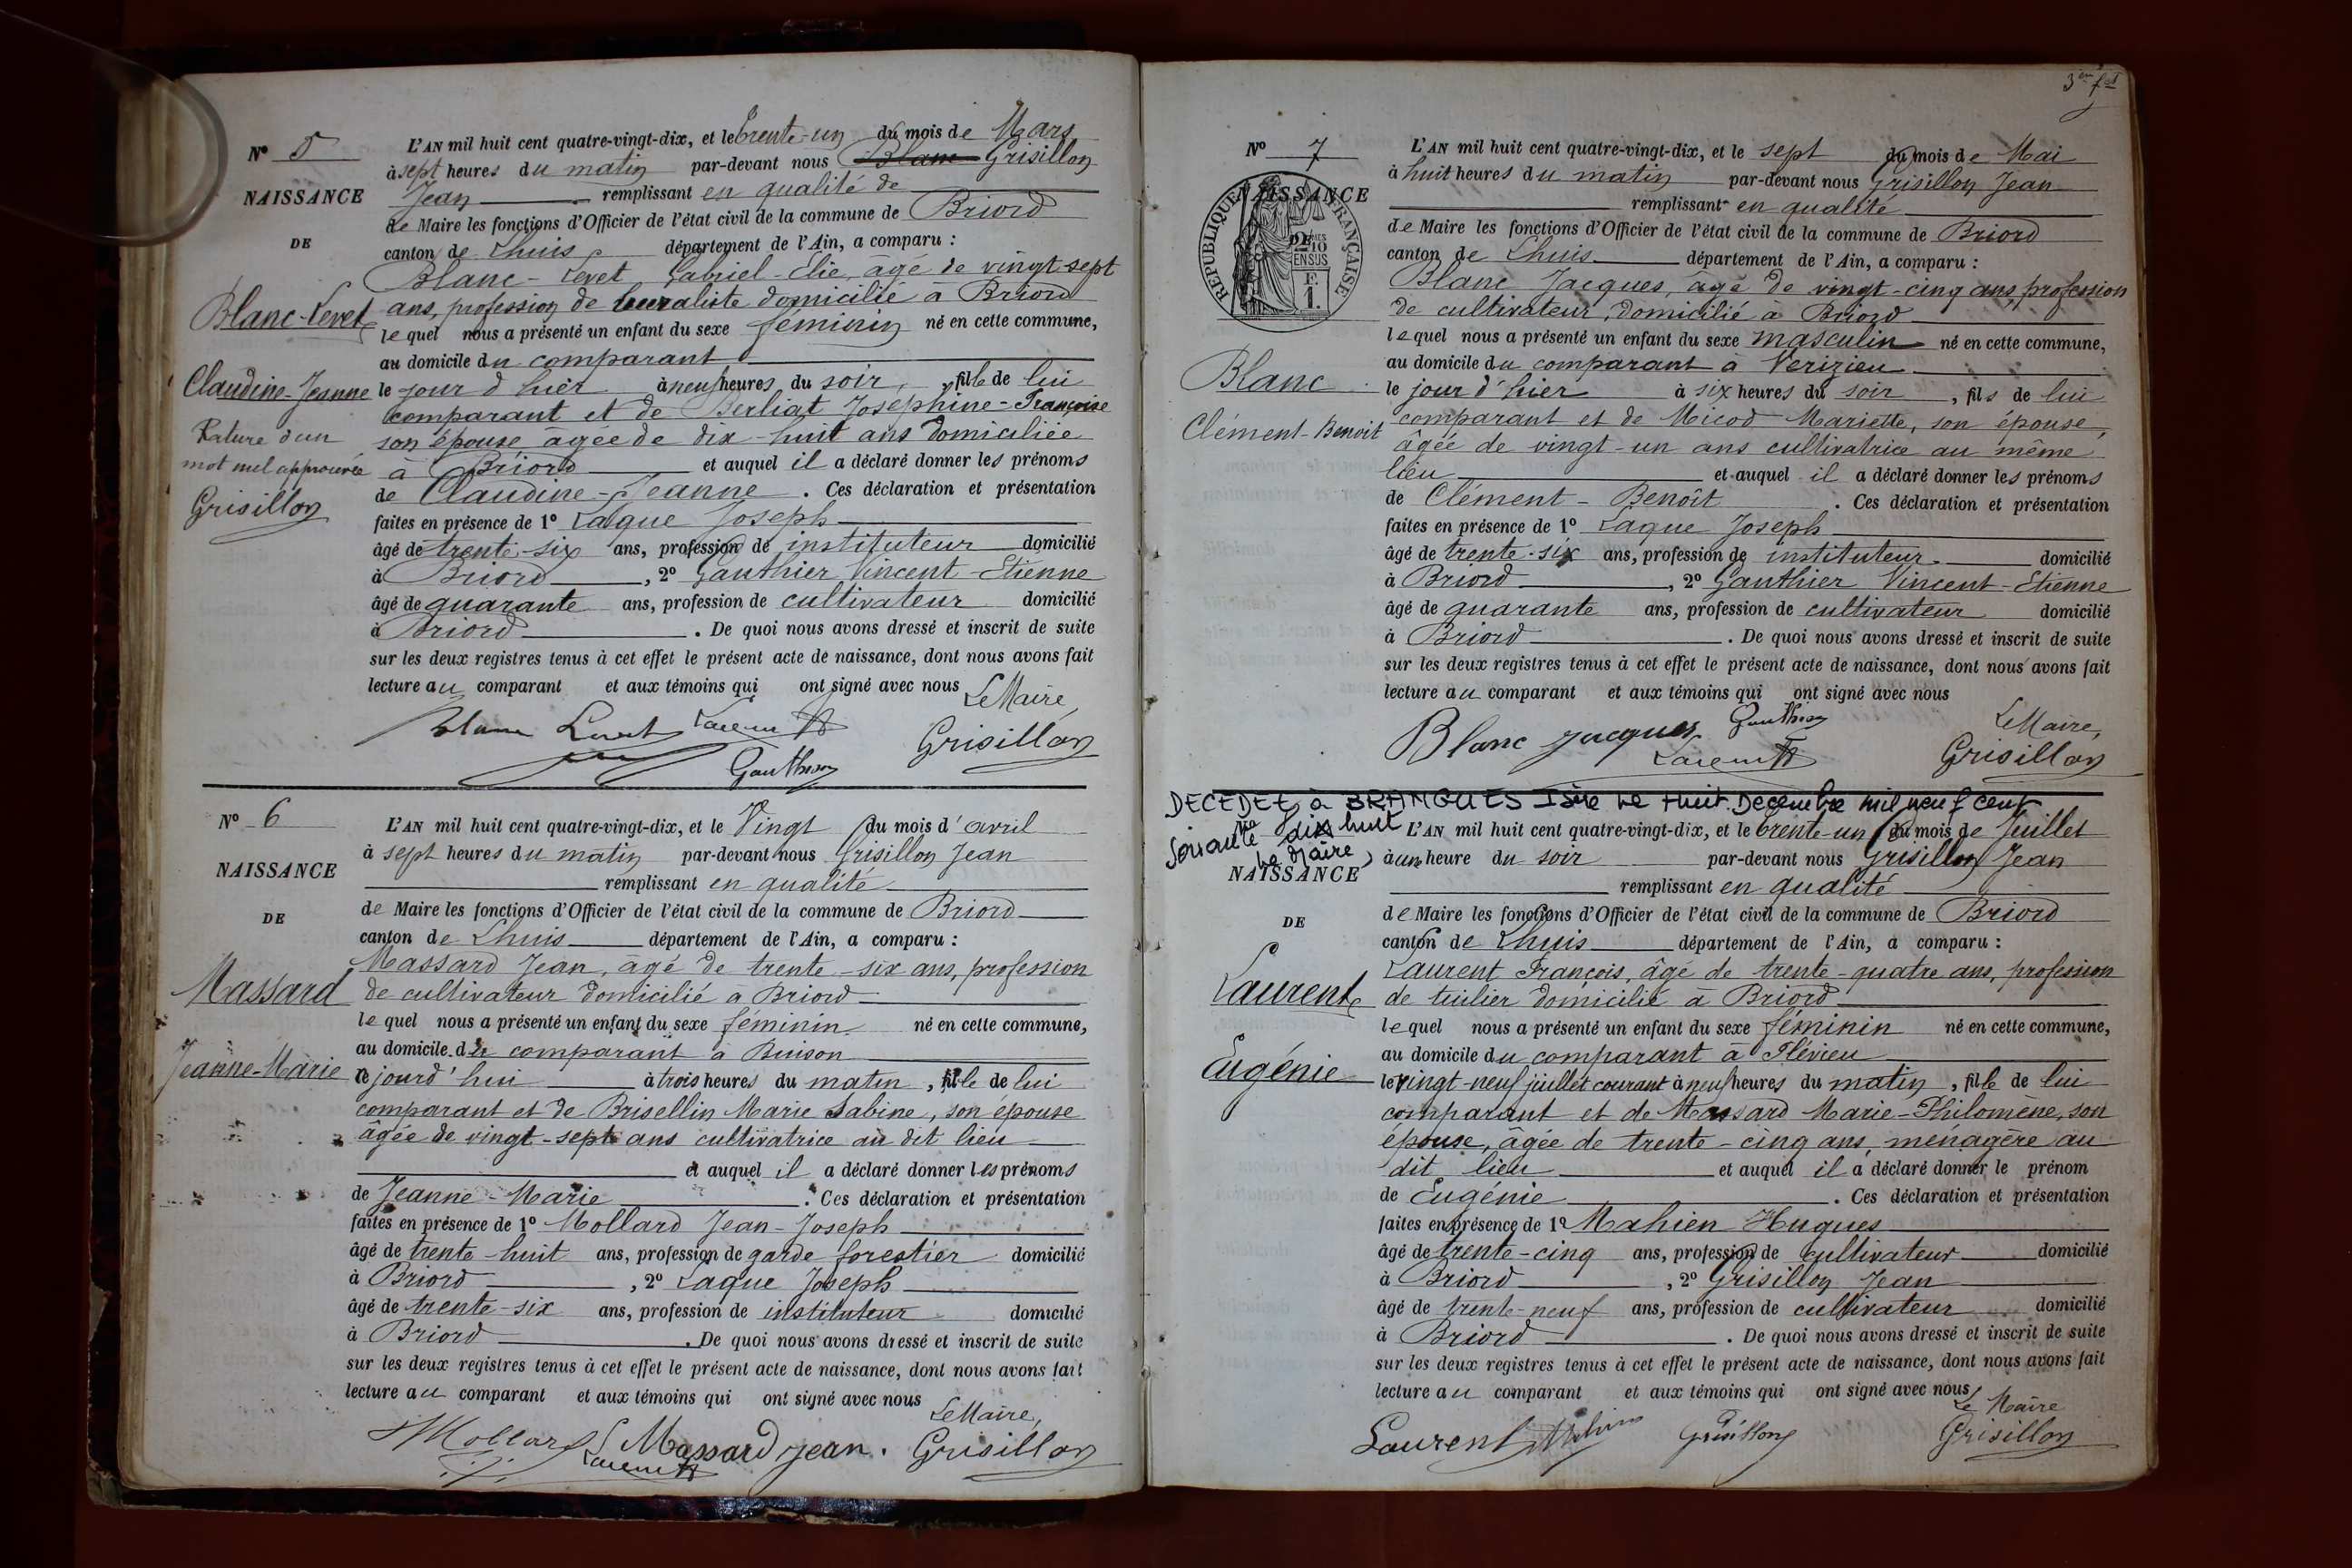 Nº 5
NAISSANCE
DE
Blanc-Levet
Claudine-Jeanne
Rature d'un
mot nul approuvée
Grisillon
L'AN mil huit cent quatre-vingt-dix, et le trente-un du mois de Mars
à sept heures du matin par-devant nous Blanc Grisillon
Jean remplissant en qualité de
de Maire les fonctions d'Officier de l'état civil de la commune de Briord
canton de Lhuis département de l'Ain, a comparu :
Blanc-Levet Gabriel-Elie, âgé de vingt-sept
ans, profession de buraliste domicilié à Briord
lequel nous a présenté un enfant du sexe féminin né en cette commune,
au domicile du comparant
le jour d'hier à neuf heures du soir, fille de lui
comparant et de Berliat Joséphine-Françoise
son épouse âgée de dix-huit ans domiciliée
à Briord et auquel il a déclaré donner les prénoms
de Claudine-Jeanne. Ces déclaration et présentation
faites en présence de 1º Laque Joseph
âgé de trente-six ans, profession de instituteur domicilié
à Briord, 2º Gauthier Vincent-Etienne
âgé de quarante ans, profession de cultivateur domicilié
à Briord. De quoi nous avons dressé et inscrit de suite
sur les deux registres tenus à cet effet le présent acte de naissance, dont nous avons fait
lecture au comparant et aux témoins qui ont signé avec nous
Le Maire,
Blanc Levet
Grisillon
Gauthier
Nº 6
NAISSANCE
DE
Massard
Jeanne-Marie
L'AN mil huit cent quatre-vingt-dix, et le Vingt du mois d'avril
à sept heures du matin par-devant nous Grisillon Jean
remplissant en qualité
de Maire les fonctions d'Officier de l'état civil de la commune de Briord
canton de Lhuis département de l'Ain, a comparu :
Massard Jean, âgé de trente-six ans, profession
de cultivateur domicilié à Briord
lequel nous a présenté un enfant du sexe féminin né en cette commune,
au domicile du comparant à Buison
ce jourd'hui à trois heures du matin, fille de lui
comparant et de Brisellin Marie Sabine, son épouse
âgée de vingt-sept ans cultivatrice au dit lieu
et auquel il a déclaré donner les prénoms
de Jeanne-Marie. Ces déclaration et présentation
faites en présence de 1º Mollard Jean-Joseph
âgé de trente-huit ans, profession de garde forestier domicilié
à Briord, 2º Laque Joseph
âgé de trente-six ans, profession de instituteur domicilié
à Briord. De quoi nous avons dressé et inscrit de suite
sur les deux registres tenus à cet effet le présent acte de naissance, dont nous avons fait
lecture au comparant et aux témoins qui ont signé avec nous
Le Maire,
Mollard Massard Jean. Grisillon
3ème ft
Nº 7
NAISSANCE
DE
RÉPUBLIQUE FRANÇAISE
Blanc
Clément-Benoit
L'AN mil huit cent quatre-vingt-dix, et le sept du mois de Mai
à huit heures du matin par-devant nous Grisillon Jean
remplissant en qualité
de Maire les fonctions d'Officier de l'état civil de la commune de Briord
canton de Lhuis département de l'Ain, a comparu :
Blanc Jacques, âgé de vingt-cinq ans, profession
de cultivateur, domicilié à Briord
lequel nous a présenté un enfant du sexe masculin né en cette commune,
au domicile du comparant à Verizieu
le jour d'hier à six heures du soir, fils de lui
comparant et de Micod Mariette, son épouse,
âgée de vingt-un ans cultivatrice au même
lieu et auquel il a déclaré donner les prénoms
de Clément-Benoît. Ces déclaration et présentation
faites en présence de 1º Laque Joseph
âgé de trente-six ans, profession de instituteur domicilié
à Briord, 2º Gauthier Vincent-Etienne
âgé de quarante ans, profession de cultivateur domicilié
à Briord. De quoi nous avons dressé et inscrit de suite
sur les deux registres tenus à cet effet le présent acte de naissance, dont nous avons fait
lecture au comparant et aux témoins qui ont signé avec nous
Le Maire,
Blanc Jacques Gauthier
Grisillon
DECEDEE à BRANGUES Isère Le Huit Decembre mil neuf cent
soixante dix huit
Le Maire,
NAISSANCE
DE
Laurent
Eugénie
L'AN mil huit cent quatre-vingt-dix, et le trente-un du mois de Juillet
à une heure du soir par-devant nous Grisillon Jean
remplissant en qualité
de Maire les fonctions d'Officier de l'état civil de la commune de Briord
canton de Lhuis département de l'Ain, a comparu :
Laurent François, âgé de trente-quatre ans, profession
de tuilier domicilié à Briord
lequel nous a présenté un enfant du sexe féminin né en cette commune,
au domicile du comparant à Flévieu
le vingt-neuf juillet courant à neuf heures du matin, fille de lui
comparant et de Massard Marie-Philomène, son
épouse, âgée de trente-cinq ans, ménagère au
dit lieu et auquel il a déclaré donner le prénom
de Eugénie. Ces déclaration et présentation
faites en présence de 1º Mahien Hugues
âgé de trente-cinq ans, profession de cultivateur domicilié
à Briord, 2º Grisillon Jean
âgé de trente-neuf ans, profession de cultivateur domicilié
à Briord. De quoi nous avons dressé et inscrit de suite
sur les deux registres tenus à cet effet le présent acte de naissance, dont nous avons fait
lecture au comparant et aux témoins qui ont signé avec nous
Le Maire
Laurent Grisillon Grisillon